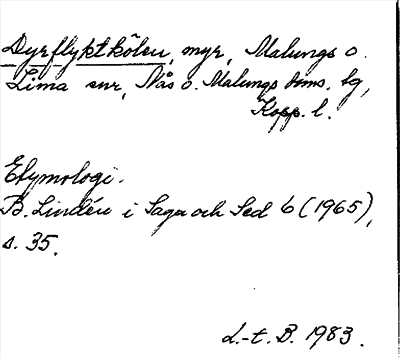 Dyrflyktkölen, myr, Malungs o.
Lima snr, Nås o. Malungs dms. tg,
Kopp. l.
Etymologi.
B. Lindén i Saga och Sed 6 (1965),
s. 35.
L.-t. B. 1983.